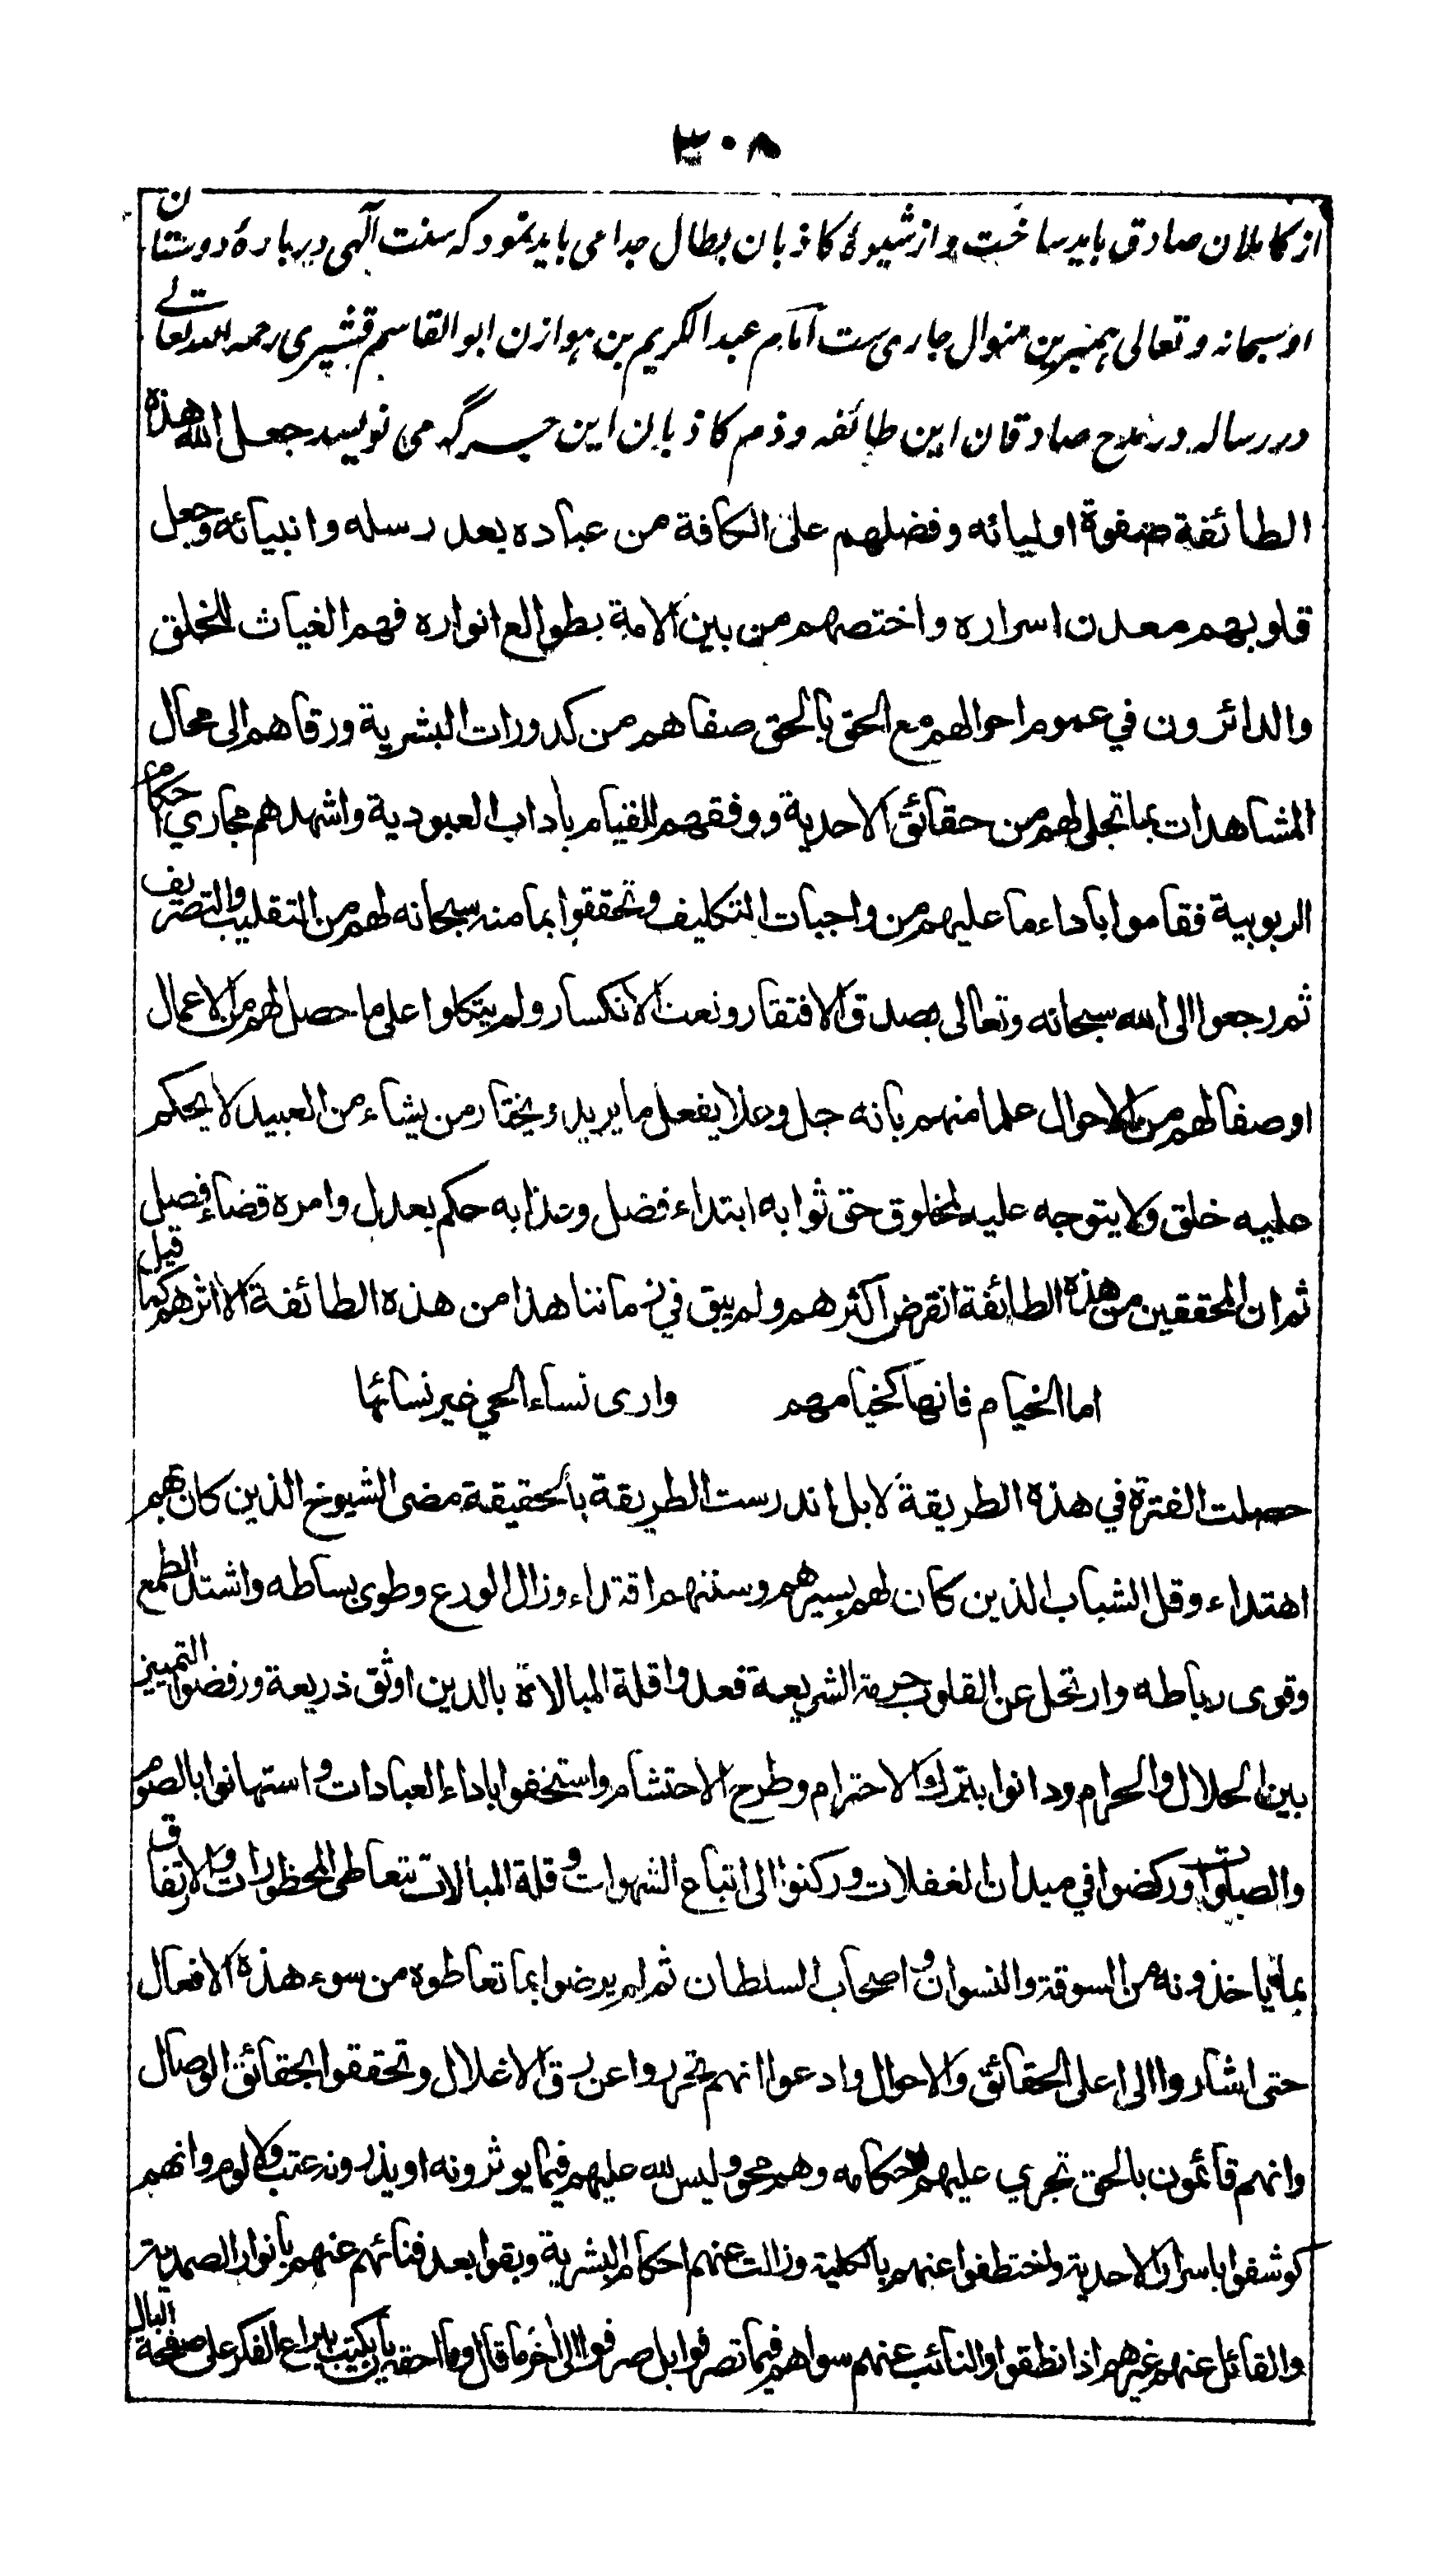 ٣٠٨
از کاملان صادق باید ساخت و از شیوۀ کاذبان بطال جدا می باید نمود که سنت آلهی دربارۀ دوستان
او سبحانه و تعالی بهمین منوال جاری ست امام عبد الکریم بن هوازن ابو القاسم قشیری رحمه الله تعالے
در رساله در مدح صادقان این طائفه و ذم کاذبان این جرگه می نویسد جعل الله هذه
الطائفة صفوة اوليائه وفضلهم على الكافة من عباده بعد رسله وانبيائه وجعل
قلوبهم معدن اسراره واختصهم من بين الامة بطوالع انواره فهم الغياث للخلق
والدائرون في عموم احوالهم مع الحق بالحق صفاهم من كدورات البشرية ورقاهم الى محال
المشاهدات بما تجلى لهم من حقائق الاحدية ووفقهم للقيام باداب العبودية واشهدهم مجاري احكام
الربوبية فقاموا باداء ما عليهم من واجبات التكليف وتحققوا بما منه سبحانه لهم من التقليب والتصريف
ثم رجعوا الى الله سبحانه وتعالى بصدق الافتقار ونعت الانكسار ولم يتكلوا على ما حصل لهم من الاعمال
او صفا لهم من الاحوال علما منهم بانه جل وعلا يفعل ما يريد ويختار من يشاء من العبيد لا يحكم
عليه خلق ولا يتوجه عليه لمخلوق حق ثوابه ابتداء فضل وعذابه حكم بعدل وامره قضاء فصل
ثم ان المحققين من هذه الطائفة انقرض اكثرهم ولم يبق في زماننا هذا من هذه الطائفة الا اثرهم كما قيل
اما الخيام فانها كخيامهم وارى نساء الحي غير نسائها
حصلت الفترة في هذه الطريقة لا بل اندرست الطريقة بالحقيقة مضى الشيوخ الذين كان بهم
اهتداء وقل الشباب الذين كان لهم بسيرهم وسننهم اقتداء وزال الورع وطوى بساطه واشتد الطمع
وقوى رباطه وارتحل عن القلوب حرمة الشريعة فعدوا قلة المبالاة بالدين اوثق ذريعة ورفضوا التمييز
بين الحلال والحرام ودانوا بترك الاحترام وطرح الاحتشام واستخفوا باداء العبادات واستهانوا بالصوم
والصلوات وركضوا في ميدان الغفلات وركنوا الى اتباع الشهوات وقلة المبالات بتعاطى المحظورات والارتفاق
بما ياخذونه من السوقة والنسوان واصحاب السلطان ثم لم يرضوا بما تعاطوه من سوء هذه الافعال
حتى اشاروا الى اعلى الحقائق والاحوال وادعوا انهم تحرروا عن رق الاغلال وتحققوا بحقائق الوصال
وانهم قائمون بالحق تجري عليهم احكامه وهم محو وليس لله عليهم فيما يوثرونه او يذرونه عتب ولا لوم وانهم
كوشفوا باسرار الاحدية واختطفوا عنهم بالكلية وزالت عنهم احكام البشرية وبقوا بعد فنائهم عنهم بانوار الصمدية
والقائل عنهم غيرهم اذا نطقوا والنائب عنهم سواهم فيما تصرفوا بل صرفوا الى اخر ما قال وما احقه بان يكتب بيراع الفكر على صفحة البال